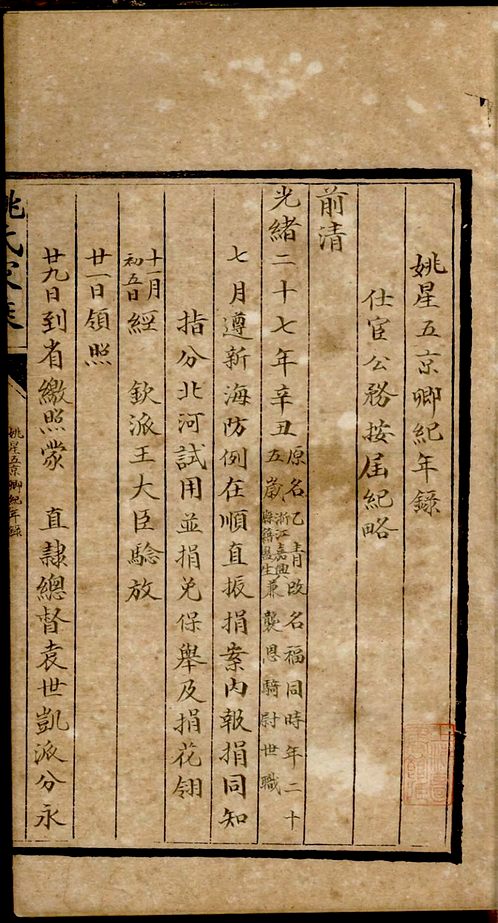 姚星五京卿紀年錄
仕宦公務按届紀略
前清
光緒二十七年辛丑原名乙青改名福同時年二十五歲浙江嘉興縣籍廩生兼襲恩騎尉世職
七月遵新海防例在順直振捐案內報捐同知
指分北河試用並捐免保舉及捐花翎
十一月初五日經 欽派王大臣驗放
廿一日領照
廿九日到省繳照蒙 直隸總督袁世凱派分永
姚氏家集
姚星五京卿紀年錄